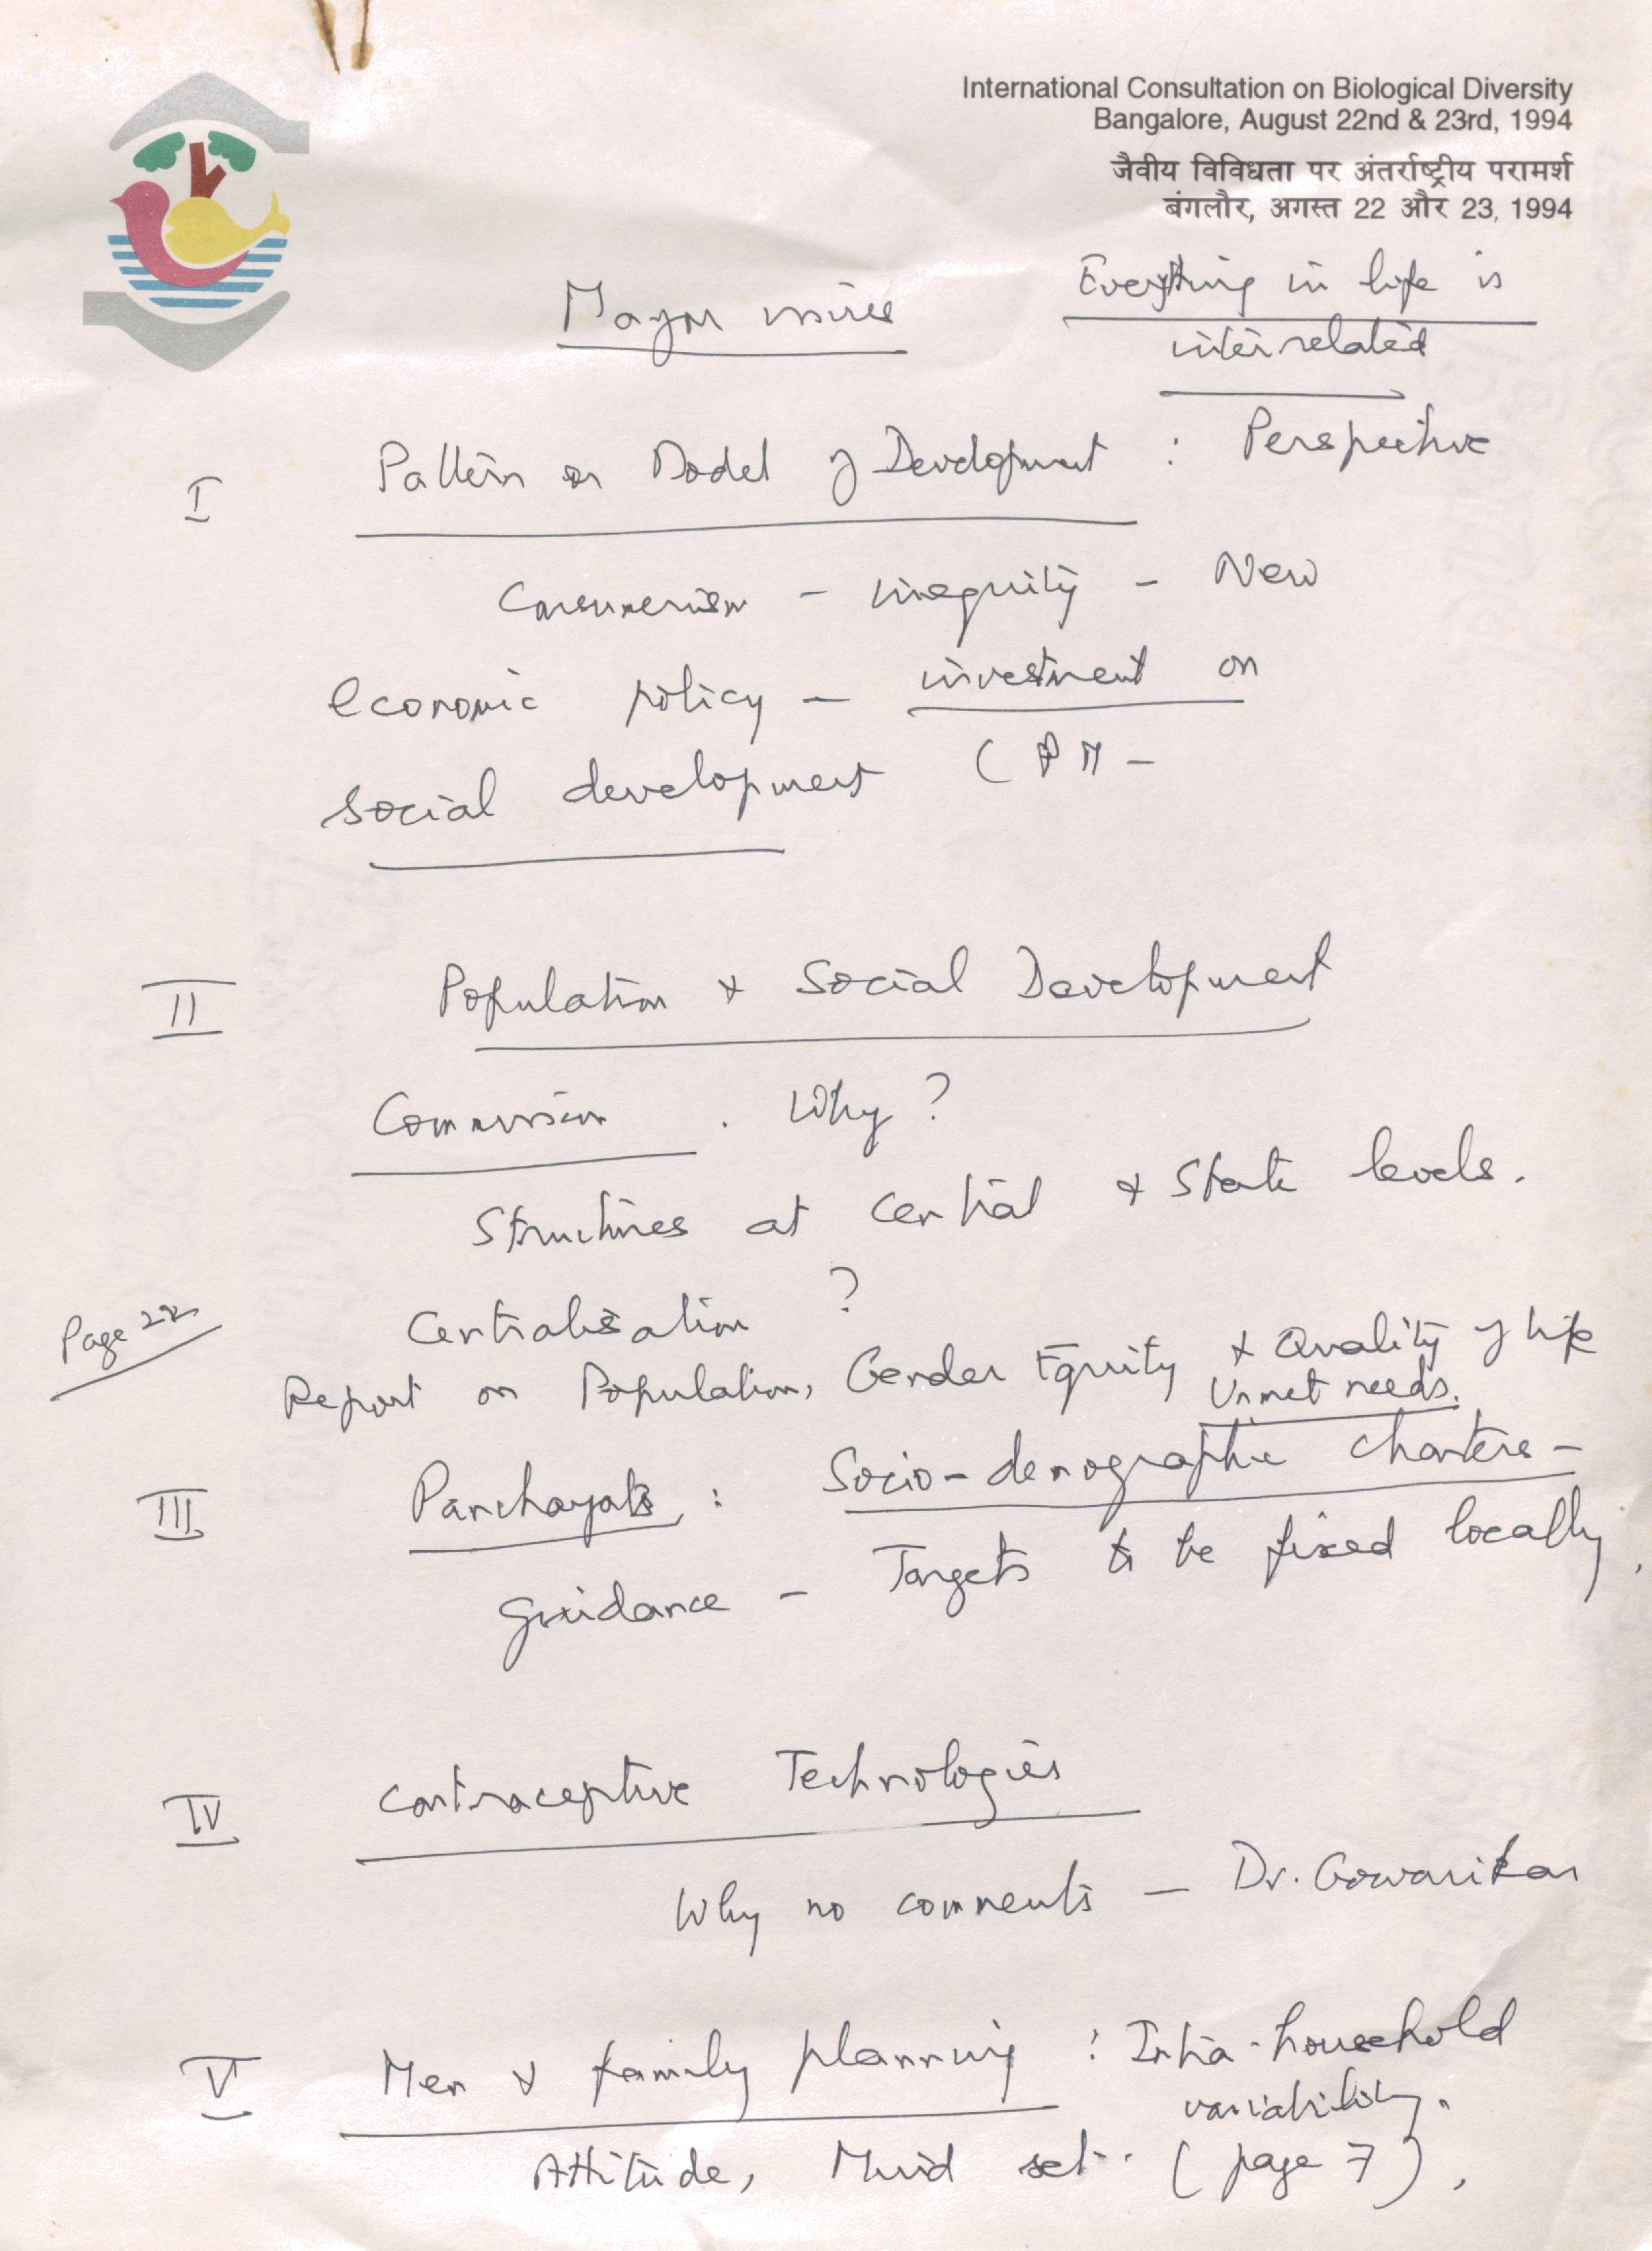 International Consultation on Biological Diversity
Bangalore, August 22nd & 23rd, 1994
जैवीय विविधता पर अंतर्राष्ट्रीय परामर्श
बंगलौर, अगस्त 22 और 23, 1994
Everything in life is
interrelated
Major issues
I Pattern or Model of Development : Perspective
Consumerism - inequity - New
economic policy - investment on
social development (PM -
II Population & Social Development
Commission . Why ?
Structures at Central & State levels.
Centralisation ?
Page 22
Report on Population, Gender Equity & Quality of life
Unmet needs.
III Panchayats : Socio-demographic charters -
guidance - Targets to be fixed locally.
IV Contraceptive Technologies
Why no comments - Dr. Gowarikar
V Men & family planning : Intra-household
variability.
Attitude, Mind set. (page 7).